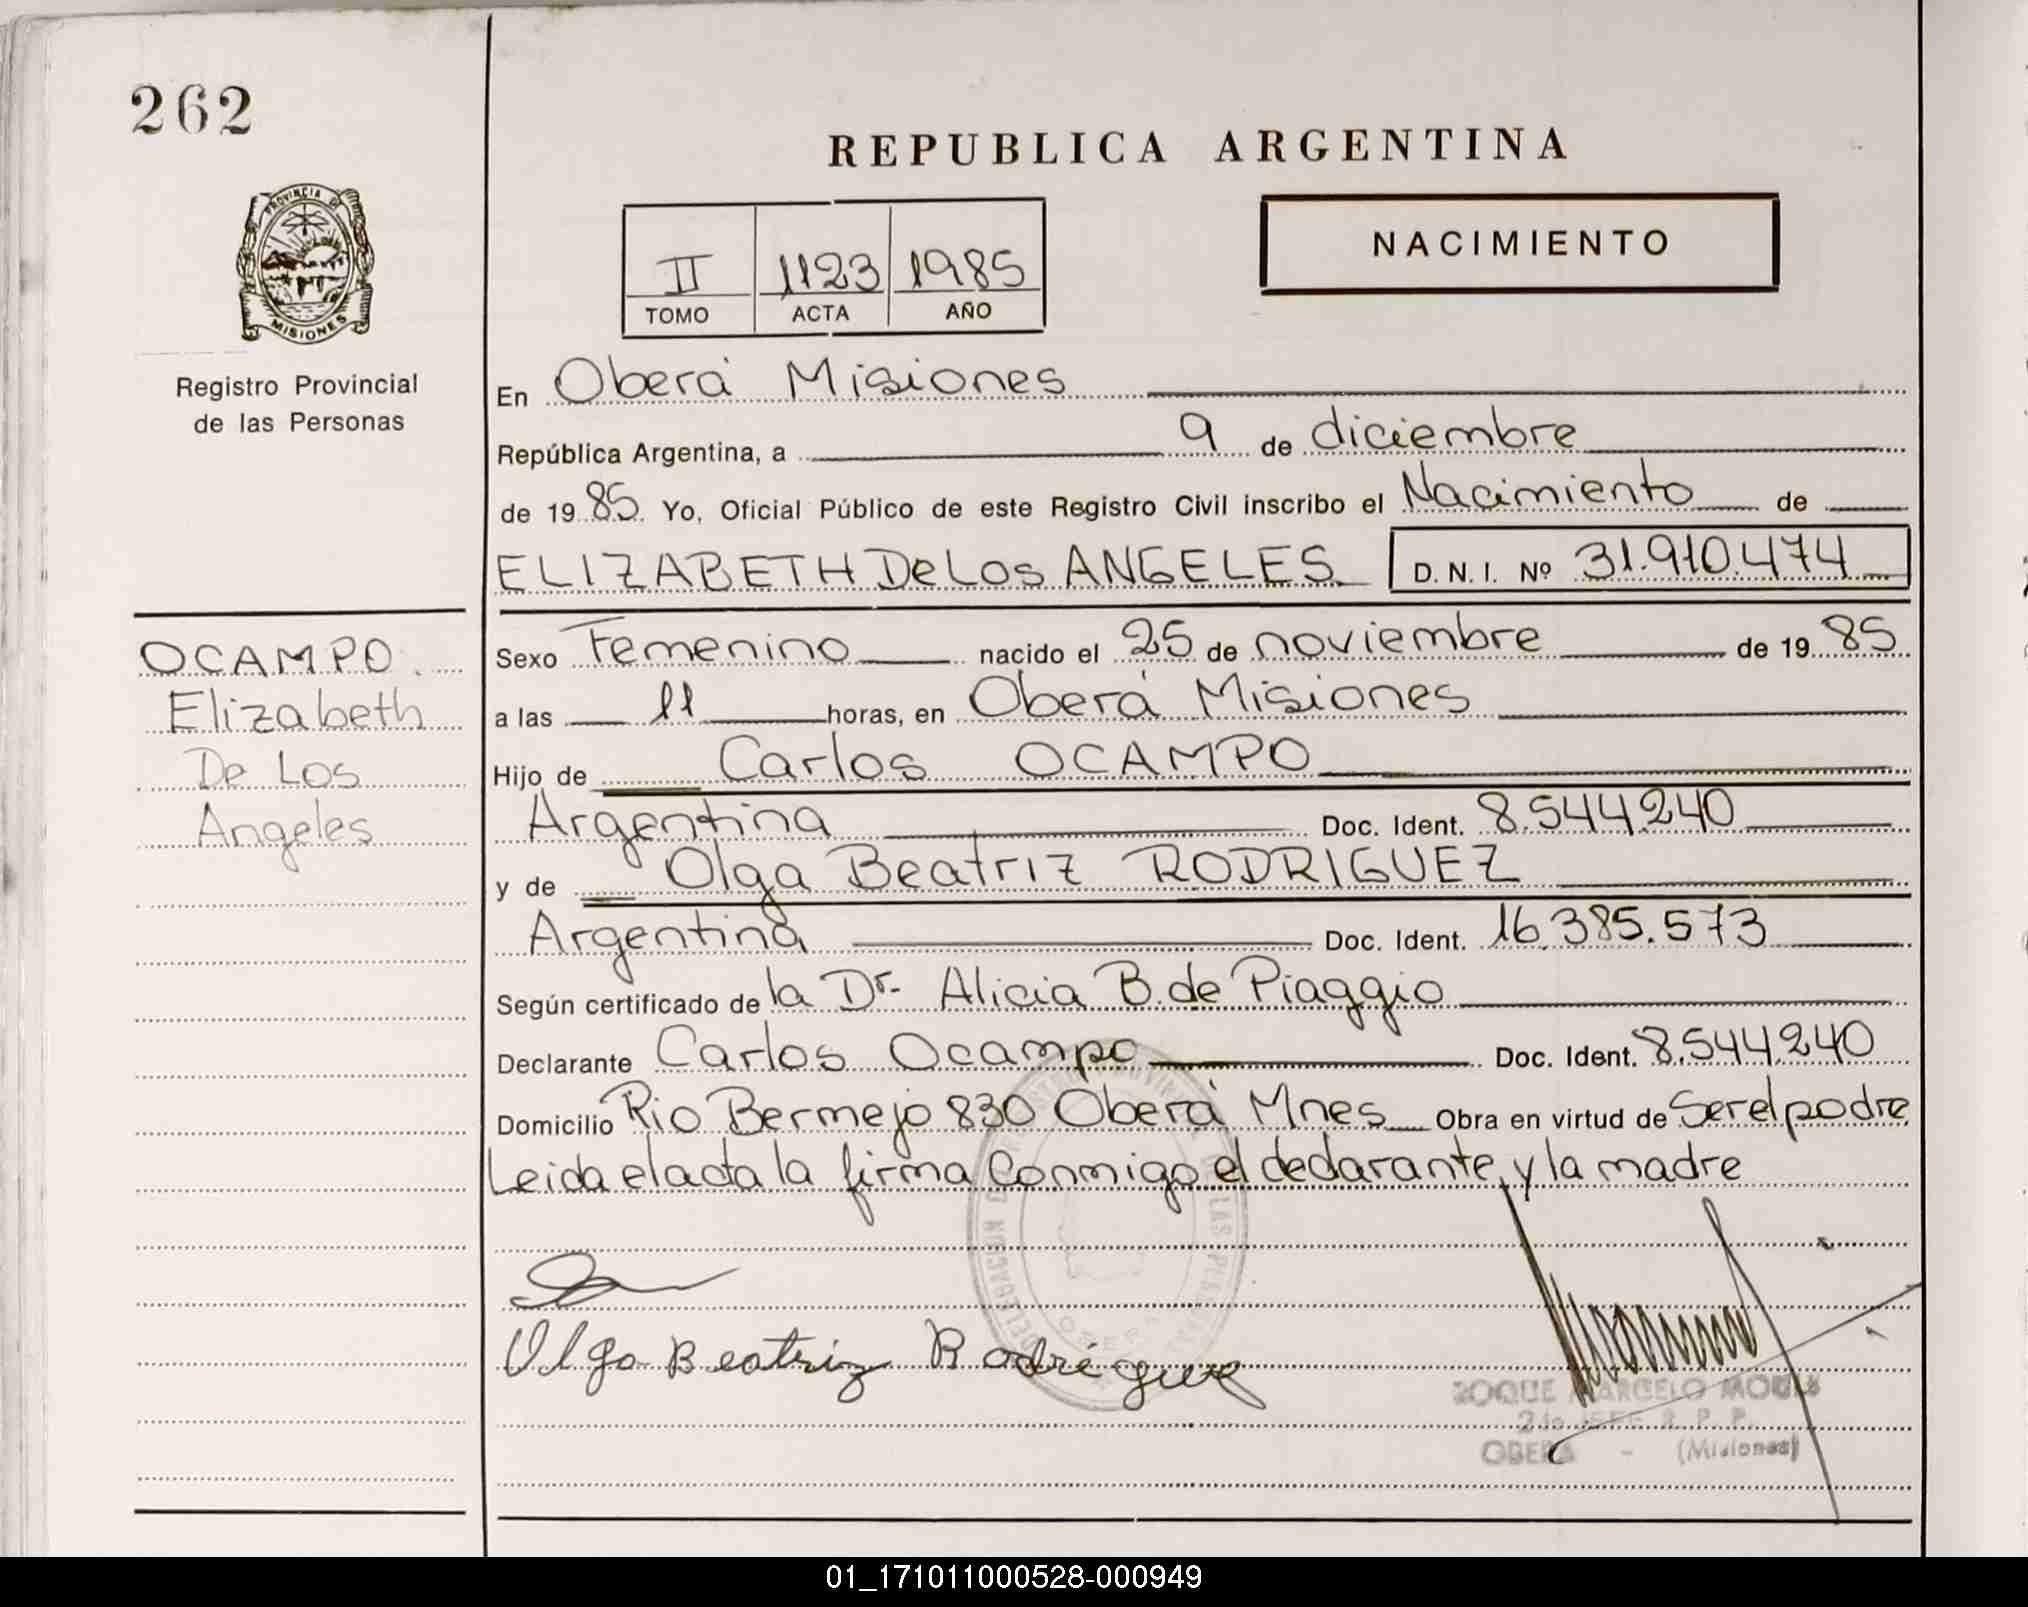 262
REPUBLICA ARGENTINA
PROVINCIA DE
MISIONES
Registro Provincial
de las Personas
II 1123 1985
TOMO ACTA AÑO
NACIMIENTO
En Oberá Misiones
República Argentina, a 9 de diciembre
de 1985. Yo, Oficial Público de este Registro Civil inscribo el Nacimiento de
ELIZABETH De Los ANGELES D. N. I. Nº 31.910.474
OCAMPO
Elizabeth
De Los
Angeles
Sexo Femenino nacido el 25 de noviembre de 1985
a las 11 horas, en Oberá Misiones
Hijo de Carlos OCAMPO
Argentina Doc. Ident. 8.544.240
y de Olga Beatriz RODRIGUEZ
Argentina Doc. Ident. 16.385.573
Según certificado de la Dr. Alicia B. de Piaggio
Declarante Carlos Ocampo Doc. Ident. 8.544.240
Domicilio Rio Bermejo 830 Oberá Mnes Obra en virtud de Ser el padre
Leida el acta la firma Conmigo el declarante, y la madre
Olga Beatriz Rodríguez
DELEGACION LAS
ROQUE MARCELO
JEFE R. P. P.
OBERA - (Misiones)
01_171011000528-000949